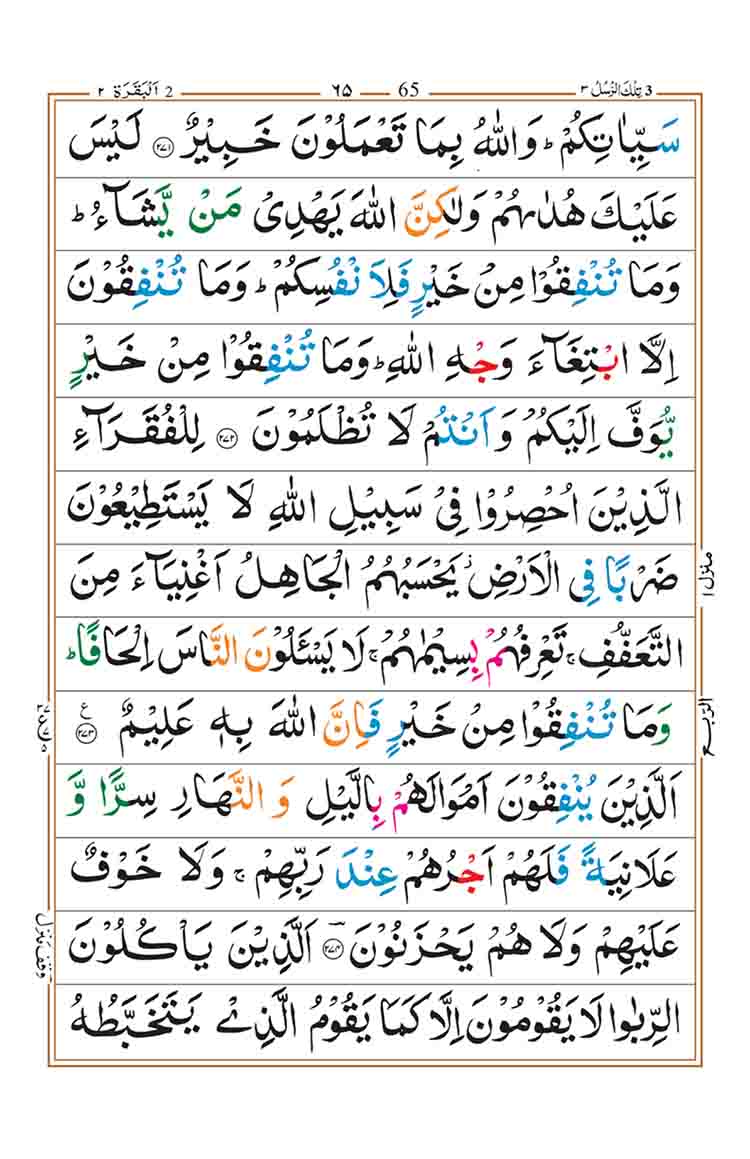 3 تِلْكَ الرُّسُلُ ٣ 65 ٦٥ 2 اَلْبَقَرَة ٢
سَيِّاٰتِكُمْ ؕ وَاللّٰهُ بِمَا تَعْمَلُوْنَ خَبِيْرٌ ﴿۲۷۱﴾ لَيْسَ
عَلَيْكَ هُدٰىهُمْ وَلٰكِنَّ اللّٰهَ يَهْدِىْ مَنْ يَّشَآءُ ؕ
وَمَا تُنْفِقُوْا مِنْ خَيْرٍ فَلِاَنْفُسِكُمْ ؕ وَمَا تُنْفِقُوْنَ
اِلَّا ابْتِغَآءَ وَجْهِ اللّٰهِ ؕ وَمَا تُنْفِقُوْا مِنْ خَيْرٍ
يُّوَفَّ اِلَيْكُمْ وَاَنْتُمْ لَا تُظْلَمُوْنَ ﴿۲۷۲﴾ لِلْفُقَرَآءِ
الَّذِيْنَ اُحْصِرُوْا فِىْ سَبِيْلِ اللّٰهِ لَا يَسْتَطِيْعُوْنَ
ضَرْبًا فِى الْاَرْضِ ۫ يَحْسَبُهُمُ الْجَاهِلُ اَغْنِيَآءَ مِنَ
التَّعَفُّفِ ۚ تَعْرِفُهُمْ بِسِيْمٰهُمْ ۚ لَا يَسْئَلُوْنَ النَّاسَ اِلْحَافًا ؕ
وَمَا تُنْفِقُوْا مِنْ خَيْرٍ فَاِنَّ اللّٰهَ بِهٖ عَلِيْمٌ ﴿۲۷۳﴾ ع
اَلَّذِيْنَ يُنْفِقُوْنَ اَمْوَالَهُمْ بِالَّيْلِ وَالنَّهَارِ سِرًّا وَّ
عَلَانِيَةً فَلَهُمْ اَجْرُهُمْ عِنْدَ رَبِّهِمْ ۚ وَلَا خَوْفٌ
عَلَيْهِمْ وَلَا هُمْ يَحْزَنُوْنَ ﴿۲۷۴﴾ اَلَّذِيْنَ يَاْكُلُوْنَ
الرِّبٰوا لَا يَقُوْمُوْنَ اِلَّا كَمَا يَقُوْمُ الَّذِىْ يَتَخَبَّطُهُ
منزل ۱
الربع
وقف منزل